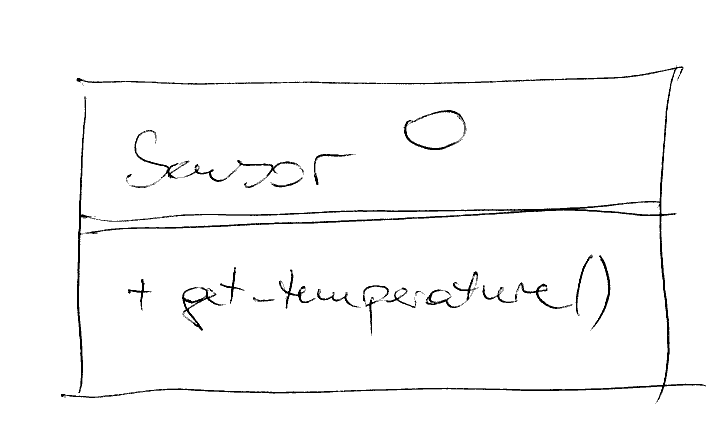 Sensor
+ get_temperature()